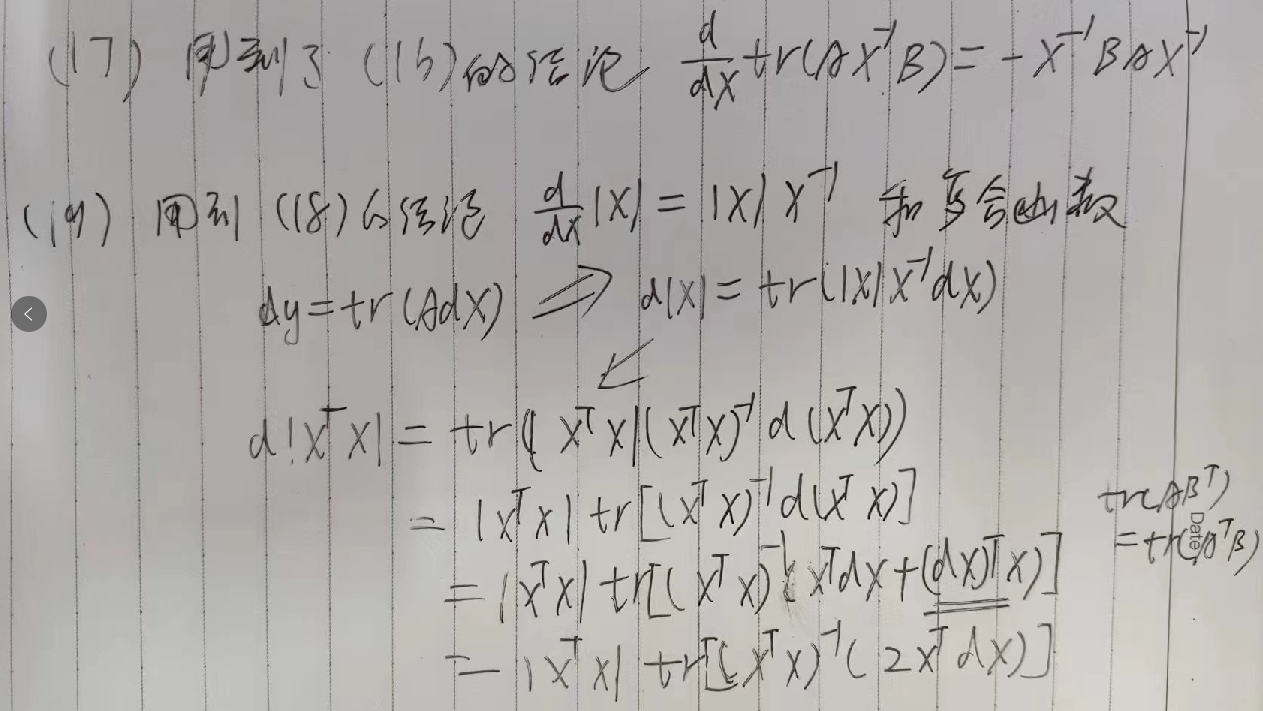 (17) 用到了 (16)的结论 d/dX tr(AX⁻¹B) = -X⁻¹BAX⁻¹
(19) 用到 (18)的结论 d/dX |X| = |X| X⁻¹ 和复合函数
dy = tr(AdX) ⟹ d|X| = tr(|X|X⁻¹dX)
d|XᵀX| = tr(|XᵀX|(XᵀX)⁻¹d(XᵀX))
= |XᵀX| tr[(XᵀX)⁻¹d(XᵀX)]
tr(ABᵀ)
= tr(AᵀB)
Date
= |XᵀX| tr[(XᵀX)⁻¹(XᵀdX+(dX)ᵀX)]
= |XᵀX| tr[(XᵀX)⁻¹(2XᵀdX)]